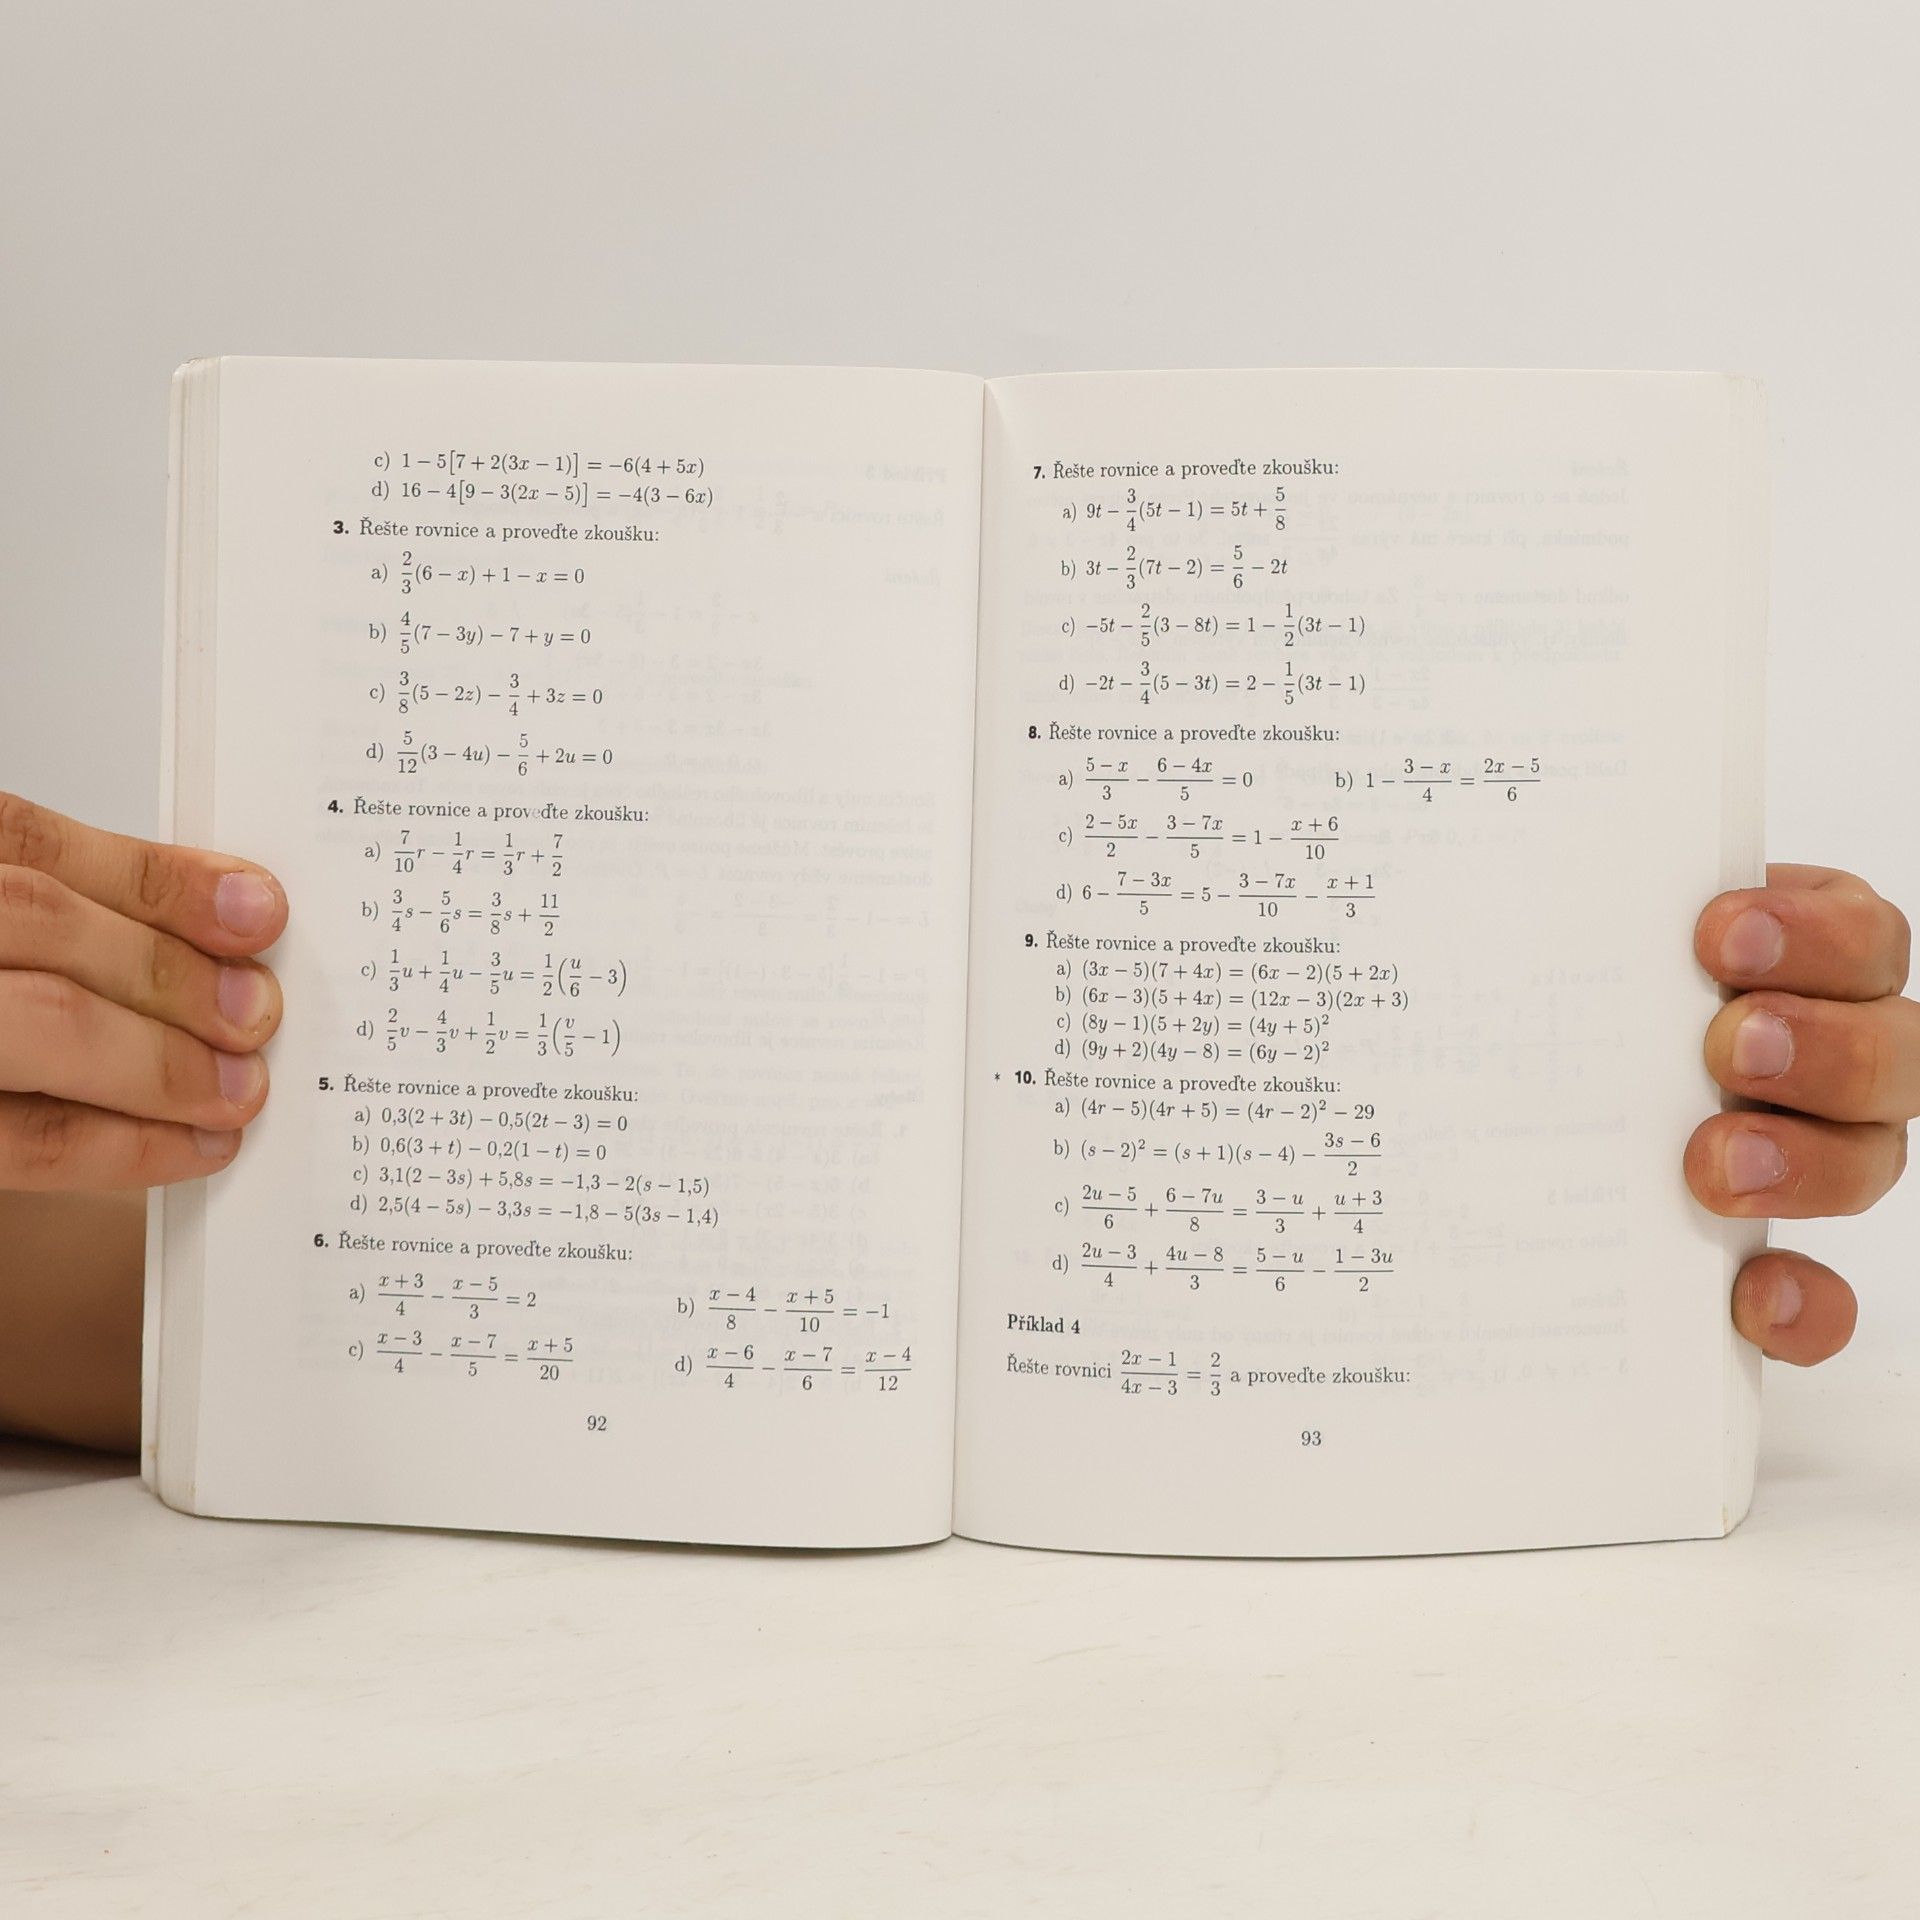 c) 1 − 5[7 + 2(3x − 1)] = −6(4 + 5x)
d) 16 − 4[9 − 3(2x − 5)] = −4(3 − 6x)
3. Řešte rovnice a proveďte zkoušku:
a) 2/3(6 − x) + 1 − x = 0
b) 4/5(7 − 3y) − 7 + y = 0
c) 3/8(5 − 2z) − 3/4 + 3z = 0
d) 5/12(3 − 4u) − 5/6 + 2u = 0
4. Řešte rovnice a proveďte zkoušku:
a) 7/10r − 1/4r = 1/3r + 7/2
b) 3/4s − 5/6s = 3/8s + 11/2
c) 1/3u + 1/4u − 3/5u = 1/2(u/6 − 3)
d) 2/5v − 4/3v + 1/2v = 1/3(v/5 − 1)
5. Řešte rovnice a proveďte zkoušku:
a) 0,3(2 + 3t) − 0,5(2t − 3) = 0
b) 0,6(3 + t) − 0,2(1 − t) = 0
c) 3,1(2 − 3s) + 5,8s = −1,3 − 2(s − 1,5)
d) 2,5(4 − 5s) − 3,3s = −1,8 − 5(3s − 1,4)
6. Řešte rovnice a proveďte zkoušku:
a) (x + 3)/4 − (x − 5)/3 = 2 b) (x − 4)/8 − (x + 5)/10 = −1
c) (x − 3)/4 − (x − 7)/5 = (x + 5)/20 d) (x − 6)/4 − (x − 7)/6 = (x − 4)/12
92
7. Řešte rovnice a proveďte zkoušku:
a) 9t − 3/4(5t − 1) = 5t + 5/8
b) 3t − 2/3(7t − 2) = 5/6 − 2t
c) −5t − 2/5(3 − 8t) = 1 − 1/2(3t − 1)
d) −2t − 3/4(5 − 3t) = 2 − 1/5(3t − 1)
8. Řešte rovnice a proveďte zkoušku:
a) (5 − x)/3 − (6 − 4x)/5 = 0 b) 1 − (3 − x)/4 = (2x − 5)/6
c) (2 − 5x)/2 − (3 − 7x)/5 = 1 − (x + 6)/10
d) 6 − (7 − 3x)/5 = 5 − (3 − 7x)/10 − (x + 1)/3
9. Řešte rovnice a proveďte zkoušku:
a) (3x − 5)(7 + 4x) = (6x − 2)(5 + 2x)
b) (6x − 3)(5 + 4x) = (12x − 3)(2x + 3)
c) (8y − 1)(5 + 2y) = (4y + 5)²
d) (9y + 2)(4y − 8) = (6y − 2)²
* 10. Řešte rovnice a proveďte zkoušku:
a) (4r − 5)(4r + 5) = (4r − 2)² − 29
b) (s − 2)² = (s + 1)(s − 4) − (3s − 6)/2
c) (2u − 5)/6 + (6 − 7u)/8 = (3 − u)/3 + (u + 3)/4
d) (2u − 3)/4 + (4u − 8)/3 = (5 − u)/6 − (1 − 3u)/2
Příklad 4
Řešte rovnici (2x − 1)/(4x − 3) = 2/3 a proveďte zkoušku:
93